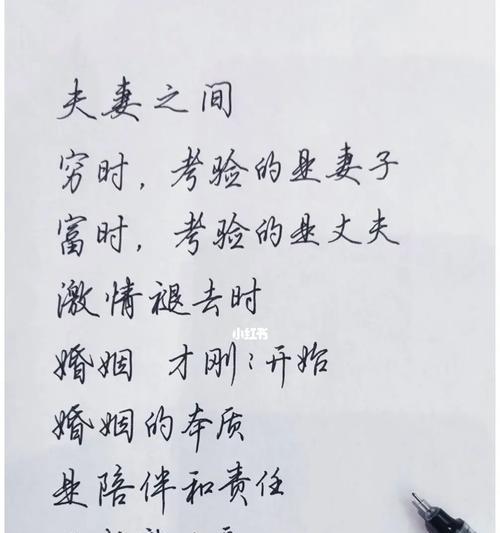 夫妻之间
穷时,考验的是妻子
富时,考验的是丈夫
激情褪去时
小红书
婚姻 才刚刚开始
婚姻的本质
是陪伴和责任